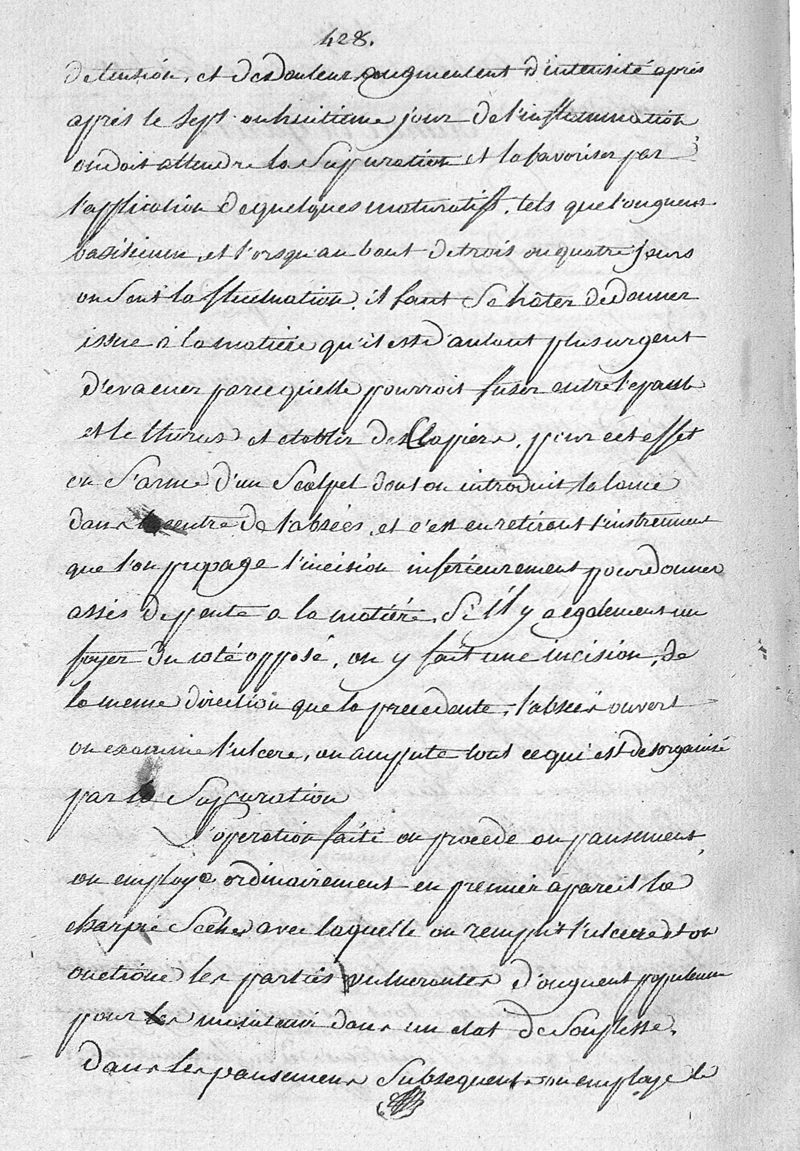 428.
de tension, et des douleurs augmentent d'intensité après
après le sept ou huitieme jour de l'inflammation
on doit attendre la Supuration et la favoriser par
l'application de quelques maturatifs, tels que l'onguent
basilicum, et lorsqu'au bout de trois ou quatre jours
on Sent la fluctuation, il faut Se hâter de donner
issue à la matière qu'il est d'autant plus urgent
d'évacuer parcequ'elle pourroit fuser entre l'epaule
et le thorax et etablir des Clapiers, pour cet effet
on S'arme d'un Scalpel dont on introduit la lame
dans le centre de l'absées, et c'est en retirant l'instrument
que l'on propage l'incision inférieurement pour donner
assés de pente a la matière, S'il y a egalement un
foyer du coté opposé, on y fait une incision, de
la meme direction que la precedente, l'absées ouvert
on examine l'ulcere, on ampute tout ce qui est desorganisé
par la Supuration
L'operation faite on procede au pansement,
on employe ordinairement en premier apareil la
charpie Seche avec laquelle on remplit l'ulcere et on
onctione les parties d'onguent populeum
pour les maintenir dans un etat de Souplesse.
Dans les pansemens Subsequents on employe le